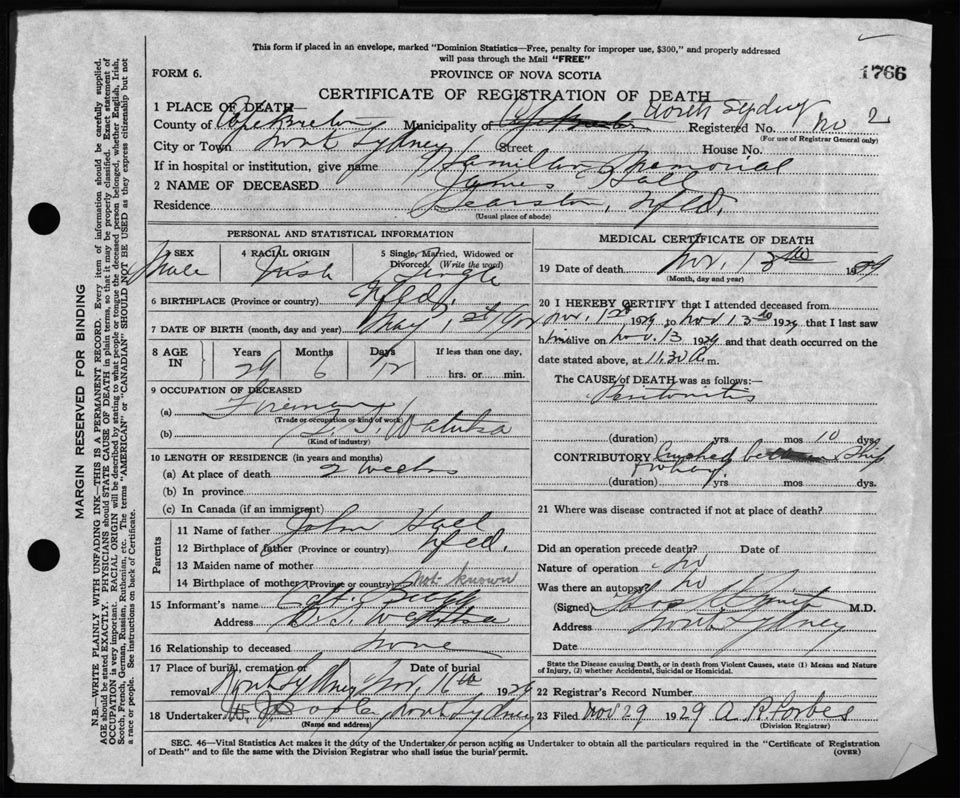 This form if placed in an envelope, marked "Dominion Statistics—Free, penalty for improper use, $300," and properly addressed
will pass through the Mail "FREE"
FORM 6.
PROVINCE OF NOVA SCOTIA
1766
CERTIFICATE OF REGISTRATION OF DEATH
1 PLACE OF DEATH—
County of Cape Breton Municipality of North Sydney Registered No. No 2
(For use of Registrar General only)
City or Town North Sydney Street House No.
If in hospital or institution, give name Hamilton Memorial
2 NAME OF DECEASED James Hall
Residence Searston, Nfld.
(Usual place of abode)
PERSONAL AND STATISTICAL INFORMATION
3 SEX 4 RACIAL ORIGIN 5 Single, Married, Widowed or
Divorced. (Write the word)
Male Irish Single
6 BIRTHPLACE (Province or country) Nfld.
7 DATE OF BIRTH (month, day and year) May 1st
8 AGE IN Years Months Days If less than one day,
29 6 12 hrs. or min.
9 OCCUPATION OF DECEASED
(a) Fireman
(Trade or occupation or kind of work)
(b) S. S. Watuka
(Kind of industry)
10 LENGTH OF RESIDENCE (in years and months)
(a) At place of death 2 weeks
(b) In province
(c) In Canada (if an immigrant)
Parents
11 Name of father John Hall
12 Birthplace of father (Province or country) Nfld.
13 Maiden name of mother
14 Birthplace of mother (Province or country) Not known
15 Informant's name Capt.
Address S. S. Watuka
16 Relationship to deceased none
17 Place of burial, cremation or Date of burial
removal North Sydney Nov. 16th 1929
18 Undertaker North Sydney
(Name and address)
MEDICAL CERTIFICATE OF DEATH
19 Date of death Nov. 13th 1929
(Month, day and year)
20 I HEREBY CERTIFY that I attended deceased from
Nov. 1st 1929 to Nov 13th 1929 that I last saw
him alive on Nov. 13 1929 and that death occurred on the
date stated above, at 11.30 A.m.
The CAUSE of DEATH was as follows:—
Peritonitis
(duration) yrs mos 10 dys.
CONTRIBUTORY Crushed between Ship
& Whay
(duration) yrs. mos dys.
21 Where was disease contracted if not at place of death?
Did an operation precede death? Date of
Nature of operation No
Was there an autopsy? No
(Signed) M.D.
Address North Sydney
Date
State the Disease causing Death, or in death from Violent Causes, state (1) Means and Nature
of Injury, (2) whether Accidental, Suicidal or Homicidal.
22 Registrar's Record Number
23 Filed Nov 29 1929 A. R. Forbes
(Division Registrar)
SEC. 46—Vital Statistics Act makes it the duty of the Undertaker or person acting as Undertaker to obtain all the particulars required in the "Certificate of Registration
of Death" and to file the same with the Division Registrar who shall issue the burial permit.
(OVER)
MARGIN RESERVED FOR BINDING
N.B.—WRITE PLAINLY WITH UNFADING INK—THIS IS A PERMANENT RECORD. Every item of information should be carefully supplied.
AGE should be stated EXACTLY. PHYSICIANS should STATE CAUSE OF DEATH in plain terms, so that it may be properly classified. Exact statement of
OCCUPATION is very important. RACIAL ORIGIN will be described by stating to what people or tongue the deceased person belonged, whether English, Irish,
Scotch, French, German, Russian, Ruthenian, etc. The terms "AMERICAN" or "CANADIAN" SHOULD NOT BE USED as they express citizenship but not
a race or people. See instructions on back of Certificate.